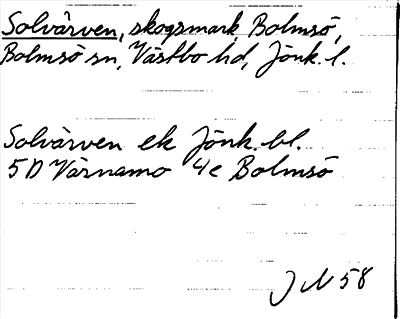 Solvärven, skogsmark, Bolmsö,
Bolmsö sn, Västbo hd, Jönk. l.
Solvärven ek Jönk. bl.
5D Värnamo 4c Bolmsö
JN 58